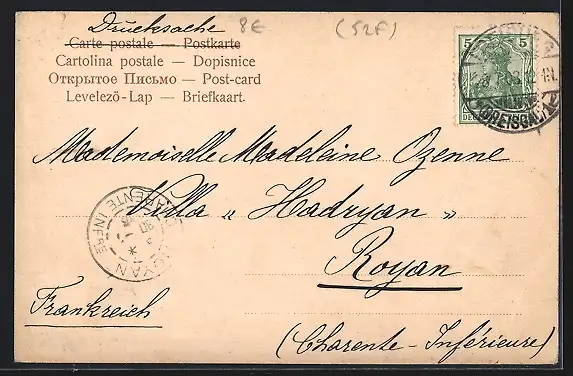 Drucksache 8E (52F)
Carte postale — Postkarte
Cartolina postale — Dopisnice
Открытое Письмо — Post-card
Levelező-Lap — Briefkaart.
5 5
Mademoiselle Madeleine Ozenne
Villa „ Hadryan "
Royan
Frankreich
(Charente-Inférieure)
ROYAN
CHARENTE INFRE